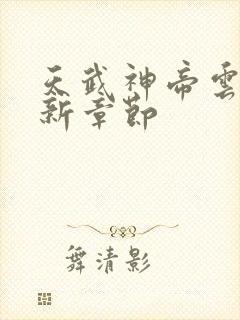 天武神帝雲
新章節
舞清影